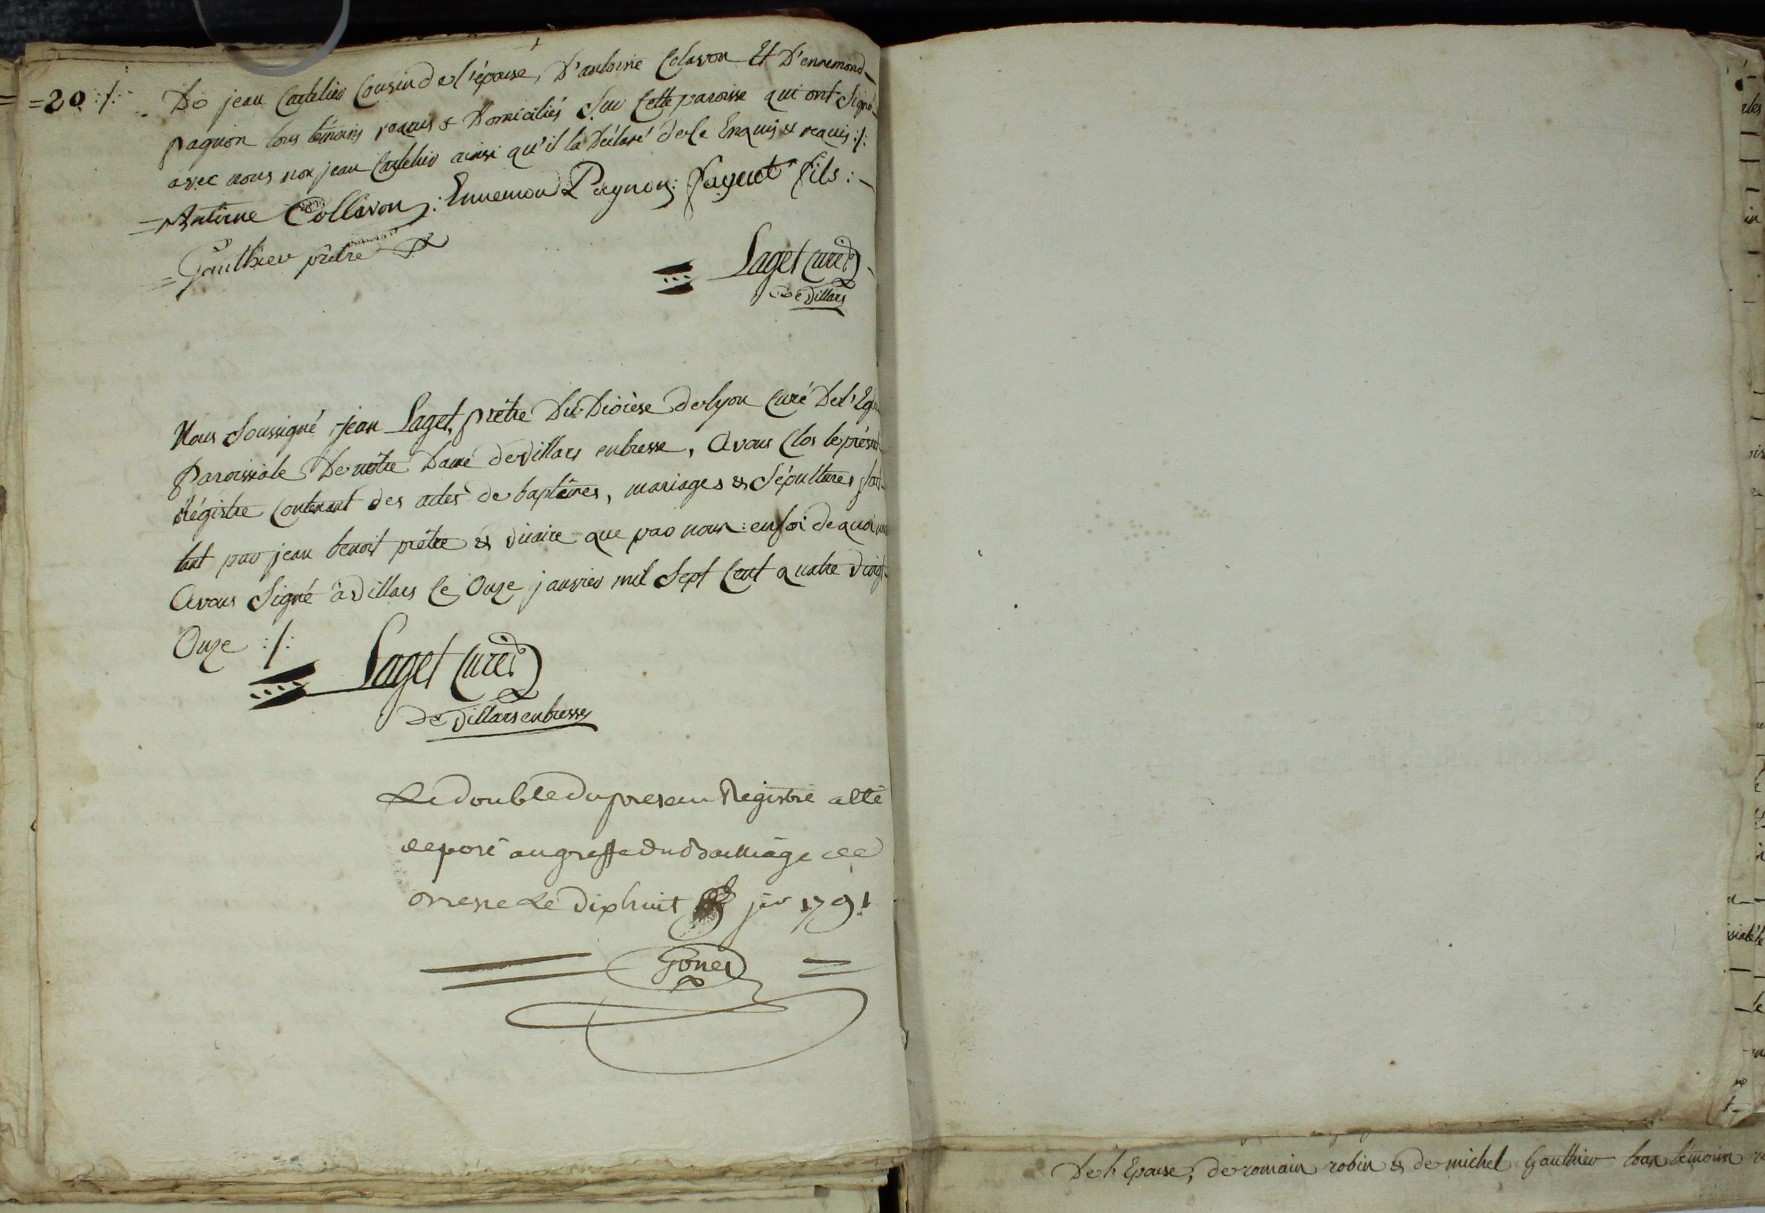 =20 :/: De jean Cartelier Cousin de l'épouse, D'antoine Colavon Et D'ennemond
pagnon tous témoins requis & Domiciliés Sur Cette paroisse qui ont Signé
avec nous non jean Cartelier ainsi qu'il l'a Déclaré de Ce Enquis & requis :/:
Antoine Collavon : Ennemon Pagnon : faguet fils : -
= Gauthier prêtre
Laget Curé
de Villars
Nous Soussigné jean Laget, prêtre Du Diocèse de lyon Curé De l'Eg
Paroissiale De nôtre Dame de Villars en bresse, Avons Clos le présent
Régistre Contenant des actes de baptêmes, mariages & Sépultures fait
tant par jean benoit prêtre & vicaire que par nous : en foi de quoi
Avons Signé à Villars Ce Onze janvier mil Sept Cent quatre vingt
Onze :/:
Laget Curé
de Villars en bresse
Le double du present Registre a été
deposé au greffe du Bailliage de
bresse Le dix huit jer 1791
De l'Epouse, de romain robin & de michel Gauthier tous témoins